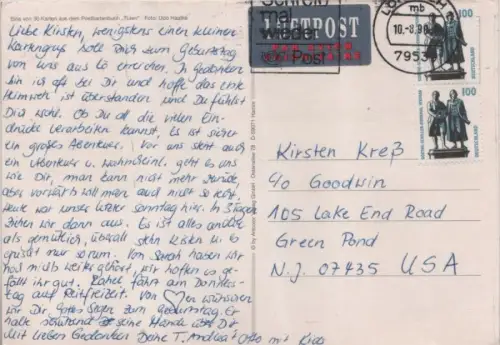 Eine von 30 Karten aus dem Postkartenbuch „Türen“ Foto: Udo Haafke
Liebe Kirsten, wenigstens einen kleinen
Kartengruß soll Dich zum Geburtstag
von uns aus Lö erreichen. In Gedanken
bin ich oft bei Dir und hoffe das erste
Heimweh ist überstanden und Du fühlst
Dich wohl. Ob Du all die vielen Ein-
drücke verarbeiten kannst, Es ist sicher
ein großes Abenteuer. Vor uns steht auch
ein Abenteuer u. wahrscheinl. geht es uns
wie Dir, man kann nicht mehr zurück
aber vorwärts will man auch nicht so recht.
Heute war unser letzter Sonntag hier. In 3 Tagen
ziehen wir dann aus. Es ist alles andere
als gemütlich, überall stehn Kisten u. es
sieht nur so rum. Von Sarah haben wir
noch nichts weiter gehört, wir hoffen es ge-
fällt ihr gut. Rahel fährt am Donners-
tag auf Reitfreizeit. Von ♡en wünschen
wir Dir Gottes Segen zum Geburtstag. Er
halte schützend seine Hände über Dir
Mit lieben Gedanken Deine T. Andrea Otto mit Kids
mal
wieder
Post
LUFTPOST
mb
7953
100
DEUTSCHLAND
100
DEUTSCHLAND
Kirsten Kreß
c/o Goodwin
105 Lake End Road
Green Pond
N.J. 07435 USA